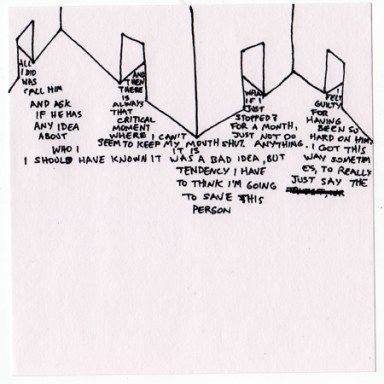 ALL
I DID
WAS
CALL HIM
AND ASK
IF HE HAS
ANY IDEA
ABOUT
WHO I
AND
THEN
THERE
IS
ALWAYS
THAT
CRITICAL
MOMENT
WHERE I CAN'T
SEEM TO KEEP MY MOUTH SHUT.
IT IS
I SHOULD HAVE KNOWN IT WAS A BAD IDEA, BUT
TENDENCY I HAVE
TO THINK I'M GOING
TO SAVE THIS
PERSON
WHAT
IF I
JUST
STOPPED?
FOR A MONTH,
JUST NOT DO
ANYTHING.
I
FELT
GUILTY
FOR
HAVING
BEEN SO
HARD ON HIM
I GOT THIS
WAY SOMETIM
ES, TO REALLY
JUST SAY THE